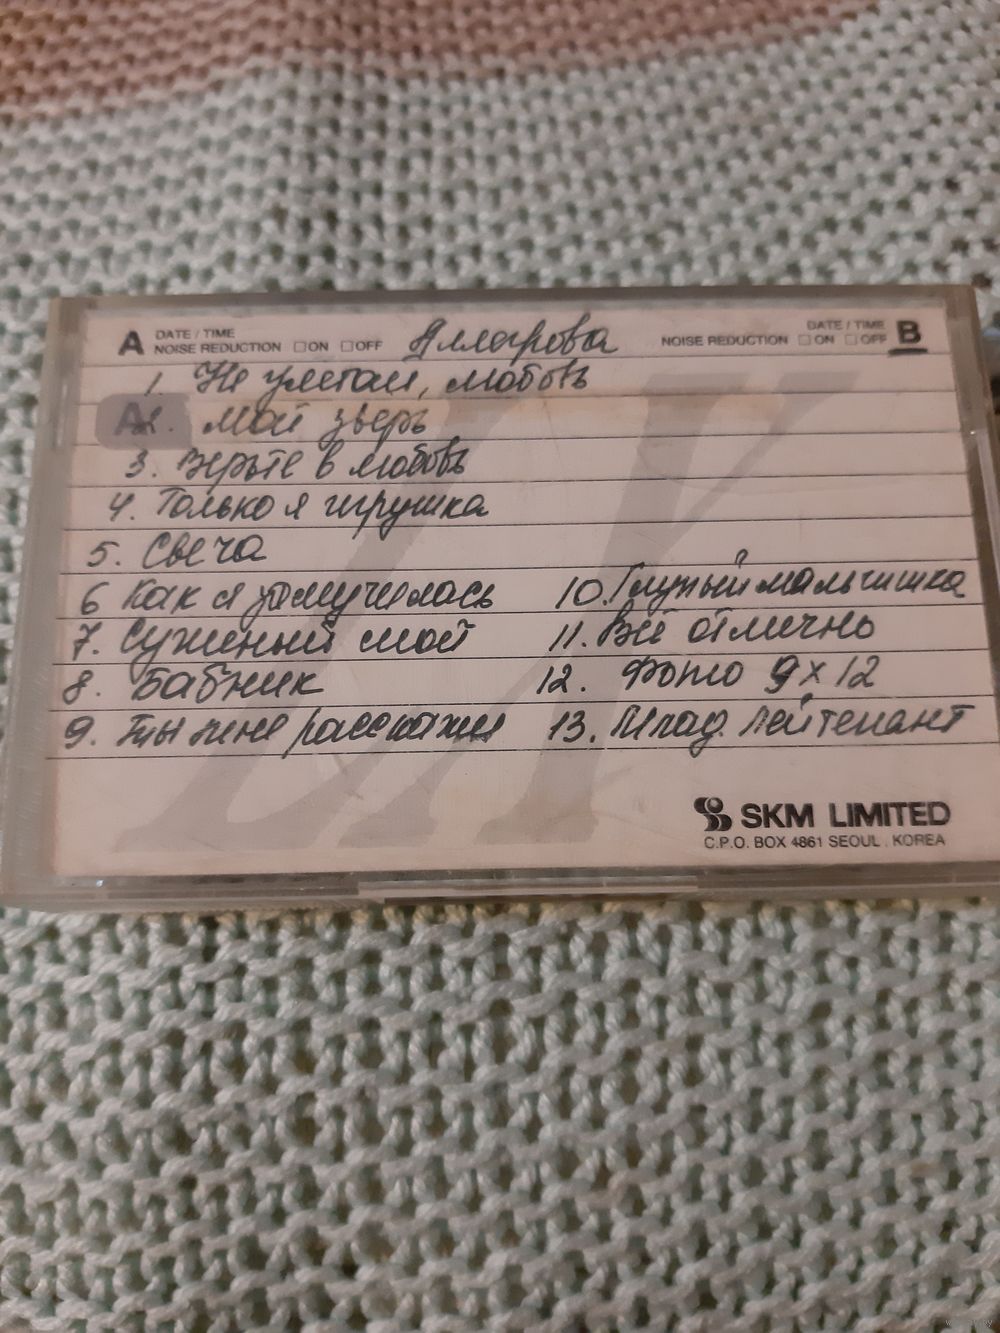 A DATE / TIME NOISE REDUCTION ☐ON ☐OFF Аллегрова NOISE REDUCTION DATE / TIME ☐ON ☐OFF B
1. Не улетай, любовь
2. Мой зверь
3. Верьте в любовь
4. Только я игрушка
5. Свеча
6 Как я измучилась 10. Глупый мальчишка
7. Суженый мой 11. Всё отлично
8. Бабник 12. Фото 9х12
9. Ты мне расскажи 13. Млад. лейтенант
SKM LIMITED
C.P.O. BOX 4861 SEOUL . KOREA